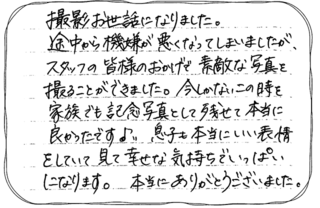 撮影お世話になりました。
途中から機嫌が悪くなってしまいましたが、
スタッフの皆様のおかげで素敵な写真を
撮ることができました。今しかないこの時を
家族でも記念写真として残せて本当に
良かったです♪。息子も本当にいい表情
をしていて見て幸せな気持ちでいっぱい
になります。本当にありがとうございました。